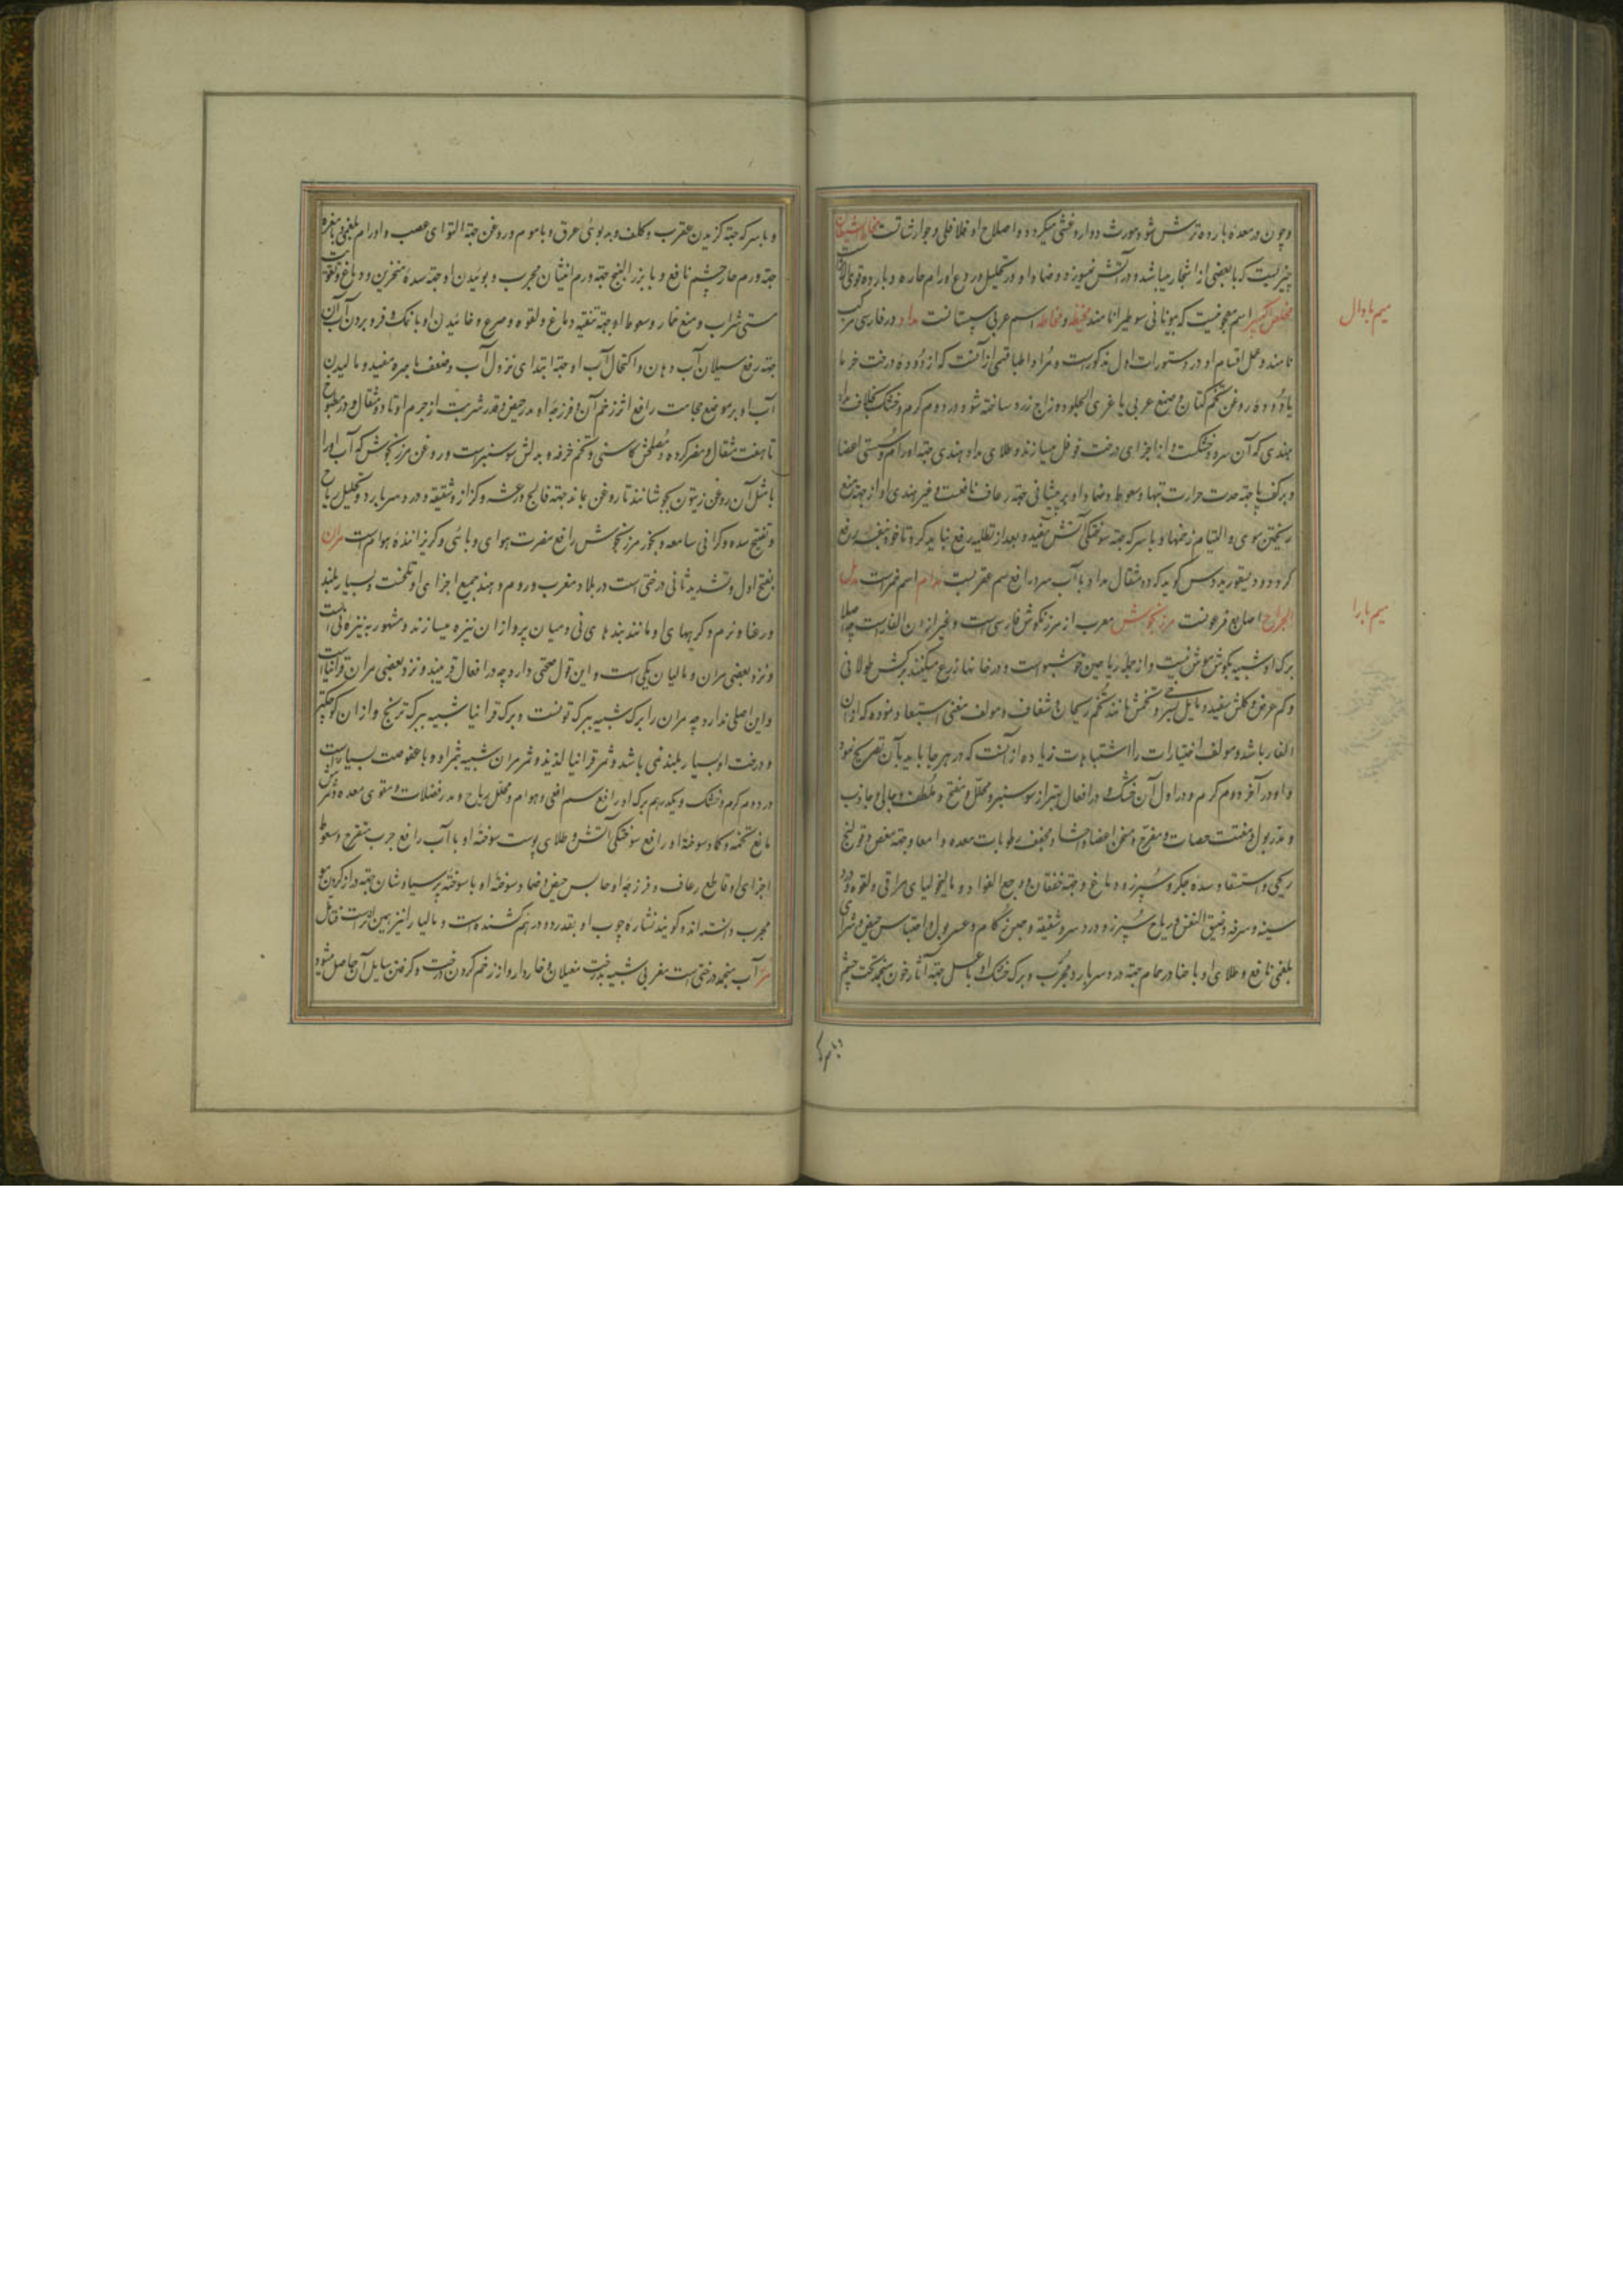 و چون در معده بارده ترش شود مورث دوار و غشی میگردد و اصلاح او فلافلی و جوارشاتست مخاط الشیطان
چیزیست که با بعضی از اشجار میباشد و در آتش نمیسوزد و ضماد او در تحلیل و ردع اورام حاره و بارده قوی الاثر است
مخلص اکبر اسم معجونیست که بیونانی سوطیرا نامند مخیطه و مخاطه اسم عربی سپستانست مداد در فارسی مرکب
نامند و عمل اقسام او در دستورات اول مذکور است و مراد اطبا قسمی از آنست که از دوده درخت خرما
یا دوده روغن تخم کتان و صمغ عربی یا غری الجلود و زاج زرد ساخته شود در دوم گرم و خشک بخلاف مداد
هندی که آن سرد و خشکست و از اجزای درخت فوفل میسازند و طلای مداد هندی جهة اورام و سستی اعضا
و بر کف پا جهة حدت حرارت تبها و سعوط و ضماد او بر پیشانی جهة رعاف نافعست و غیر هندی او از جهة منع
ریختن موی و التیام زخمها و با سرکه جهة سوختگی آتش مفید و بعد از تطلیه رفع نباید کرد تا خود بنفسه رفع
گردد و دیسقوریدوس گوید که دو مثقال مداد با آب سرد رافع سم عقربست مدام اسم خمر است مدمل
الجراح اصابع فرعونست مرزنجوش معرب از مرزنگوش فارسی است و غیر اذان الفار است چه اصلا
برگ او شبیه بگوش موش نیست و از جمله ریاحین خوشبو است و در خانها زرع میکنند برگش طولانی
و کم عرض و گلش سفید و مایل بسرخی و تخمش مانند تخم ریحان و شفاف و مولف مغنی استبعاد نموده که اذان
الفار باشد و مولف اختیارات را اشتباهات زیاده از آنست که در هر جا باید بآن تصریح نمود
و او در آخر دوم گرم و در اول آن خشک و در افعال بهتر از سوسنبر و محلل و مفتح و ملطف و جالی و جاذب
و مدر بول و مفتت حصات و مفرح و مسخن اعضا و احشا و مجفف رطوبات معده و امعا و جهة مغص و قولنج
ریحی و استسقا و سده جگر و سپرز و دماغ و جهة خفقان و وجع الفواد و مالیخولیای مراقی و لقوه و درد
سینه و سرفه و ضیق النفس و ریاح سپرز و درد سر و شقیقه و حبس زکام و عسر بول و احتباس حیض و شرای
بلغمی نافع و طلای او با حنا در حمام جهة درد سر بارد مجرب و برگ خشک او با عسل جهة آثار خون منجمد تحت چشم
میم با دال
میم با را
و با سرکه جهة گزیدن عقرب و کلف و بدبوئی عرق و با موم و روغن جهة التوای عصب و اورام بلغمی و با مغره
جهة ورم حار چشم نافع و با بزرالبنج جهة ورم انثیان مجرب و بوئیدن او جهة سده منخرین و دماغ و تقویت
مستی شراب و منع خمار و سعوط او جهة تنقیه دماغ و لقوه و صرع و خائیدن او با نمک و فرو بردن آب آن
جهة رفع سیلان آب دهان و اکتحال آب او جهة ابتدای نزول آب و ضعف باصره مفید و مالیدن
آب او بر موضع حجامت رافع اثر زخم آن و فرزجه او مدر حیض و قدر شربت از جرم او تا دو مثقال و در مطبوخ
تا هفت مثقال و مضر گرده و مصلحش کاسنی و تخم خرفه و بدلش سوسنبر است و روغن مرزنجوش که آب او را
با مثل آن روغن زیتون بجوشانند تا روغن بماند جهة فالج و رعشه و کزاز و شقیقه و درد سر بارد و تحلیل ریاح
و تفتیح سده و گرانی سامعه و بخور مرزنجوش رافع مضرت هوای وبائی و گریزاننده هوام است مران
بفتح اول و تشدید ثانی درختی است در بلاد مغرب و روم و هند جمیع اجزای او تلخست و بسیار بلند
و رعنا و نرم و گرههای او مانند بندهای نی و میان پر و از آن نیزه میسازند و مشهور به نیزه نی است
و نزد بعضی مران و مالیان یکی است و این قول صحتی دارد چه در افعال قریبند و نزد بعضی مران قرانیا است
و این اصلی ندارد چه مران را برگ شبیه ببرگ توتست و برگ قرانیا شبیه ببرگ ترنج و از آن کوچکتر
و درخت او بسیار بلند نمی باشد و ثمر قرانیا لذیذ و ثمر مران شبیه بثمر او و با عفوصت بسیار است
در دوم گرم و خشک و یکدرهم برگ او رافع سم افعی و هوام و محلل ریاح و مدر فضلات و مقوی معده و ثمرش
مانع تخمه و کماد سوخته او رافع سوختگی آتش و طلای پوست سوخته او با آب رافع جرب متقرح و سعوط
اجزای او قاطع رعاف و فرزجه او حابس حیض و ضماد سوخته او با سوخته پر سیاوشان جهة دراز کردن مو
مجرب دانسته اند و گویند نشاره چوب او بقدر دو درهم کشنده است و مالیا را نیز همین اثر است قاتل
مرّ آب منجمد درختی است مغربی شبیه بدرخت مغیلان و خاردار و از زخم کردن درخت و گرفتن سایل آن حاصل میشود